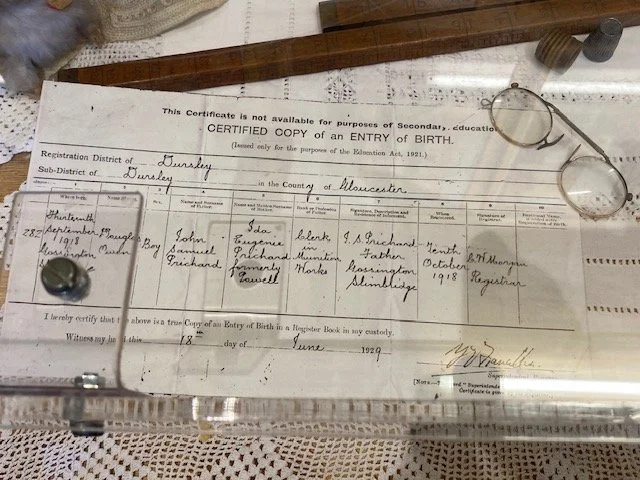 This Certificate is not available for purposes of Secondary Education
CERTIFIED COPY of an ENTRY OF BIRTH.
(Issued only for the purposes of the Education Act, 1921.)
Registration District of Dursley
Sub-District of Dursley in the County of Gloucester
1 2 3 4 5 6 7 8 9 10
When born. Name Sex. Name and Surname of Father. Name and Maiden Surname of Mother. Rank or Profession of Father. Signature, Description and Residence of Informant. When Registered. Signature of Registrar.
282
Thirteenth
September
1918
Gossington
Douglas
Owen
Boy
John
Samuel
Prichard
Ida
Eugenie
Prichard
formerly
Powell
Clerk
in
Munition
Works
J. S. Prichard
Father
Gossington
Slimbridge
Tenth
October
1918
Registrar
I hereby certify that the above is a true Copy of an Entry of Birth in a Register Book in my custody.
Witness my hand this 18th day of June 1929